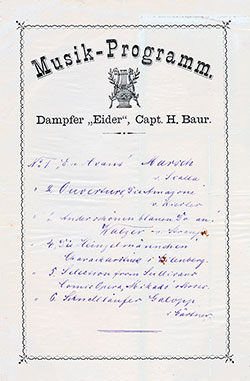 Musik-Programm.
Dampfer „Eider", Capt. H. Baur.
No 1. En Avant Marsch
v.
" 2. Ouverture Die Amazone
v.
" 3. An der schönen blauen Donau
Walzer v.
" 4. Die Heinzelmännchen
Charakterstück v. Eilenberg.
" 5. Selection from Sullivans
Comic Opera, Mikado
" 6. Schnellläufer Galopp
v. Gärtner.